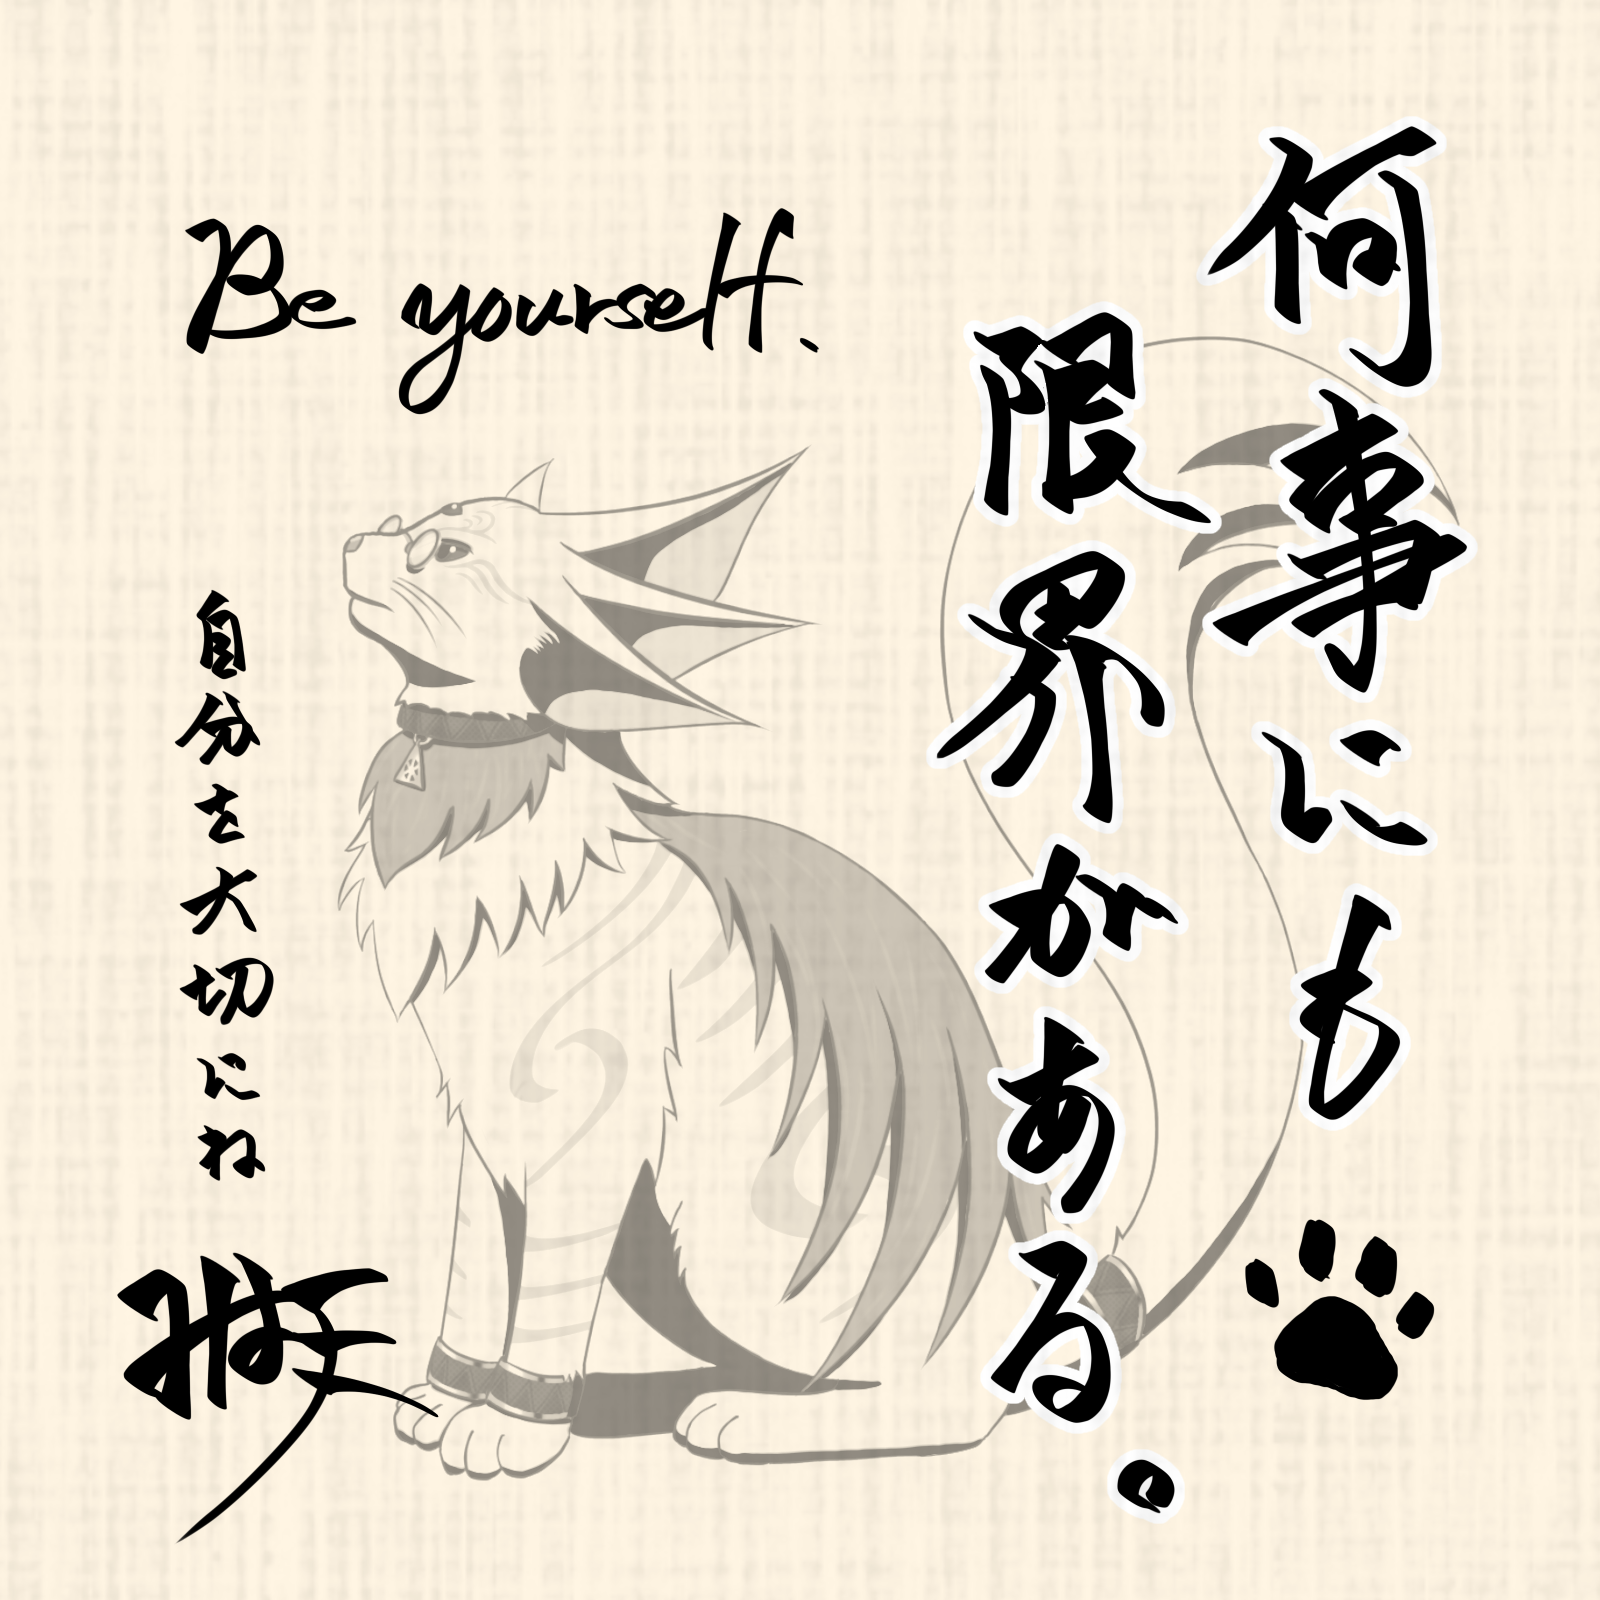 何事にも
限界がある。
Be yourself.
自分を大切にね